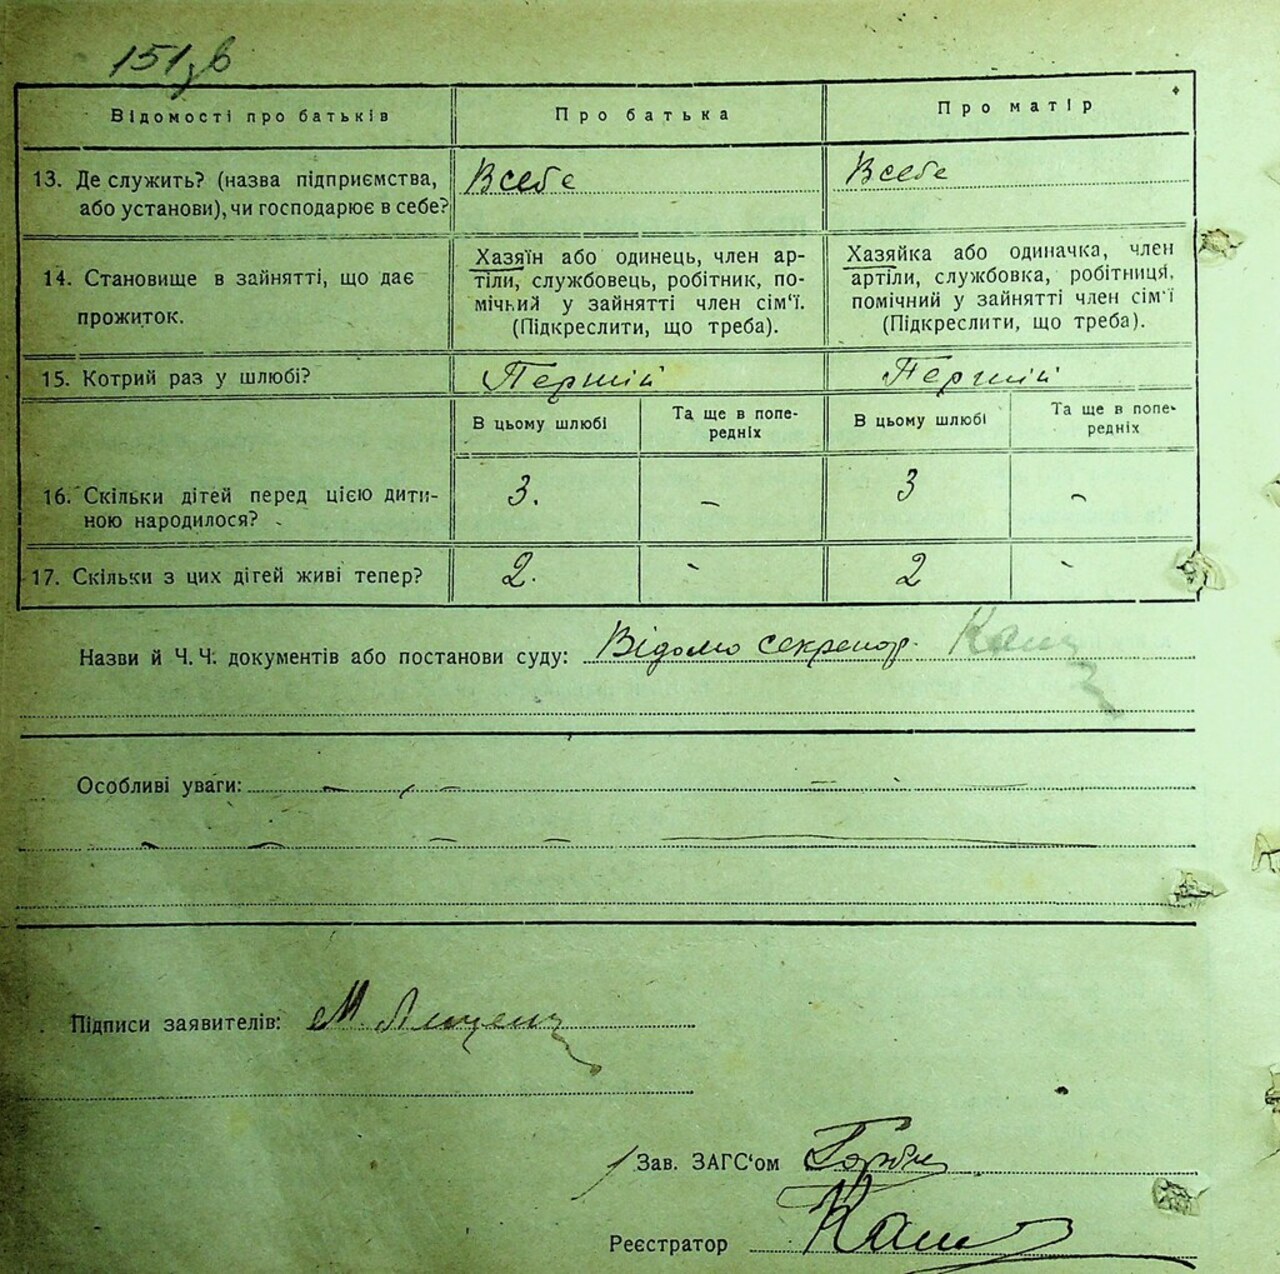 151,в
Відомості про батьків Про батька Про матір
13. Де служить? (назва підприємства, або установи), чи господарює в себе? В себе В себе
14. Становище в зайнятті, що дає прожиток.
Хазяїн або одинець, член ар-
тіли, службовець, робітник, по-
мічний у зайнятті член сім'ї.
(Підкреслити, що треба).
Хазяйка або одиначка, член
артіли, службовка, робітниця,
помічний у зайнятті член сім'ї
(Підкреслити, що треба).
15. Котрий раз у шлюбі? Перший Перший
В цьому шлюбі Та ще в попе-
редніх В цьому шлюбі Та ще в попе-
редніх
16. Скільки дітей перед цією дити-
ною народилося? 3. – 3 –
17. Скільки з цих дітей живі тепер? 2. - 2 -
Назви й Ч.Ч. документів або постанови суду: Відомо секретар.
Особливі уваги:
Підписи заявителів: М.
Зав. ЗАГС'ом
Реєстратор